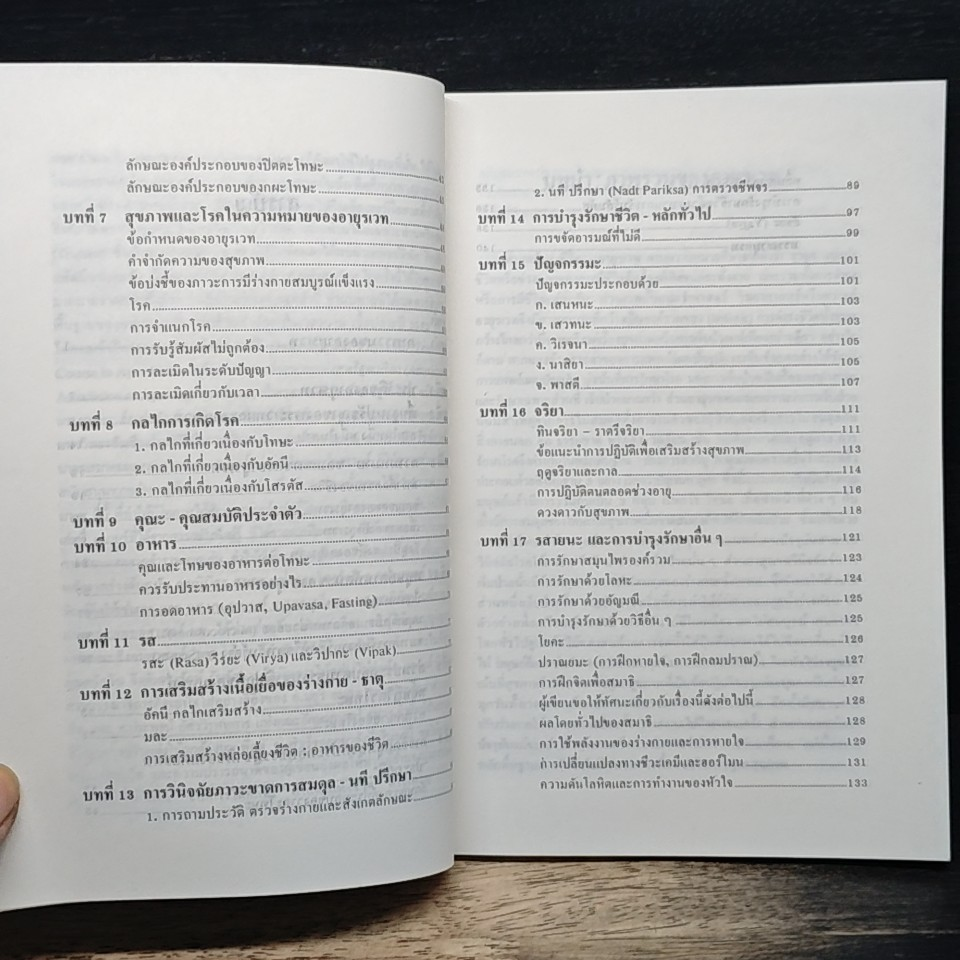 ลักษณะองค์ประกอบของปิตตะโทษะ
ลักษณะองค์ประกอบของกผะโทษะ
บทที่ 7 สุขภาพและโรคในความหมายของอายุรเวท
ข้อกำหนดของอายุรเวท
คำจำกัดความของสุขภาพ
ข้อบ่งชี้ของภาวะการมีร่างกายสมบูรณ์แข็งแรง
โรค
การจำแนกโรค
การรับรู้สัมผัสไม่ถูกต้อง
การละเมิดในระดับปัญญา
การละเมิดเกี่ยวกับเวลา
บทที่ 8 กลไกการเกิดโรค
1. กลไกที่เกี่ยวเนื่องกับโทษะ
2. กลไกที่เกี่ยวเนื่องกับอัคนี
3. กลไกที่เกี่ยวเนื่องกับโสรตัส
บทที่ 9 คุณะ - คุณสมบัติประจำตัว
บทที่ 10 อาหาร
คุณและโทษของอาหารต่อโทษะ
ควรรับประทานอาหารอย่างไร
การอดอาหาร (อุปวาส, Upavasa, Fasting)
บทที่ 11 รส
รสะ (Rasa) วีร์ยะ (Virya) และวิปากะ (Vipak)
บทที่ 12 การเสริมสร้างเนื้อเยื่อของร่างกาย - ธาตุ
อัคนี กลไกเสริมสร้าง
มละ
การเสริมสร้างหล่อเลี้ยงชีวิต : อาหารของชีวิต
บทที่ 13 การวินิจฉัยภาวะขาดการสมดุล - นที ปรีกษา
1. การถามประวัติ ตรวจร่างกายและสังเกตลักษณะ
2. นที ปรีกษา (Nadt Pariksa) การตรวจชีพจร 89
บทที่ 14 การบำรุงรักษาชีวิต - หลักทั่วไป 97
การขจัดอารมณ์ที่ไม่ดี 99
บทที่ 15 ปัญจกรรมะ 101
ปัญจกรรมะประกอบด้วย 101
ก. เสนหนะ 103
ข. เสวทนะ 103
ค. วิเรจนา 105
ง. นาสิยา 105
จ. พาสตี 107
บทที่ 16 จริยา 111
ทินจริยา – ราตรีจริยา 111
ข้อแนะนำการปฏิบัติเพื่อเสริมสร้างสุขภาพ 113
ฤดูจริยาและกาล 114
การปฏิบัติตนตลอดช่วงอายุ 116
ดวงดาวกับสุขภาพ 118
บทที่ 17 รสายนะ และการบำรุงรักษาอื่น ๆ 121
การรักษาสมุนไพรองค์รวม 123
การรักษาด้วยโลหะ 124
การรักษาด้วยอัญมณี 125
การบำรุงรักษาด้วยวิธีอื่น ๆ 125
โยคะ 126
ปราณยมะ (การฝึกหายใจ, การฝึกลมปราณ) 127
การฝึกจิตเพื่อสมาธิ 127
ผู้เขียนขอให้ทัศนะเกี่ยวกับเรื่องนี้ดังต่อไปนี้ 128
ผลโดยทั่วไปของสมาธิ 128
การใช้พลังงานของร่างกายและการหายใจ 129
การเปลี่ยนแปลงทางชีวะเคมีและฮอร์โมน 131
ความดันโลหิตและการทำงานของหัวใจ 133